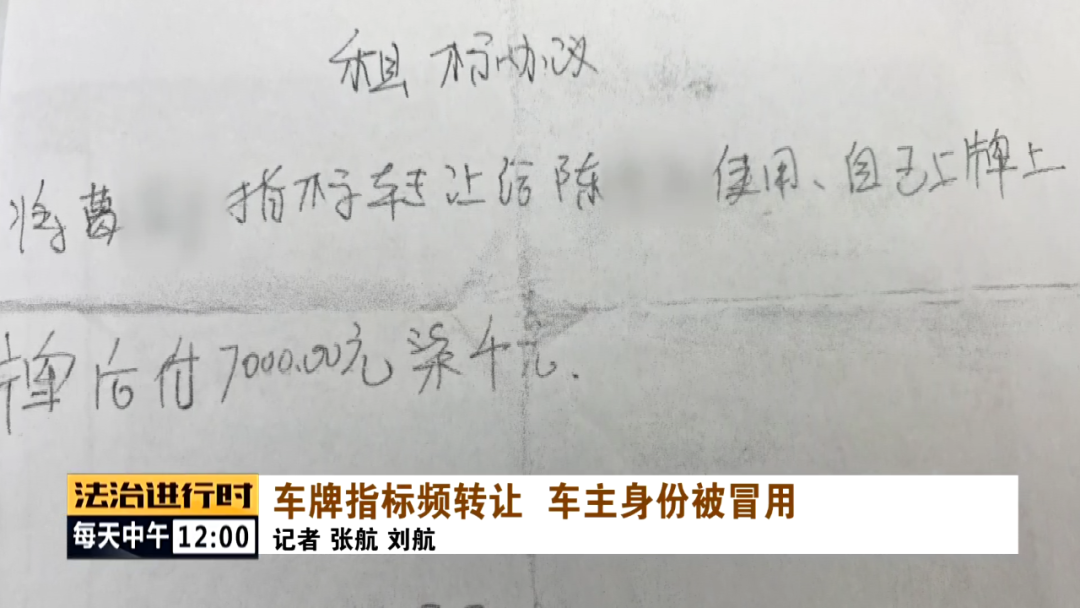 租标协议
将曹 指标转让给陈 使用、自己上牌上
牌后付7000.00元柒千元.
法治进行时
每天中午 12:00
车牌指标频转让 车主身份被冒用
记者 张航 刘航